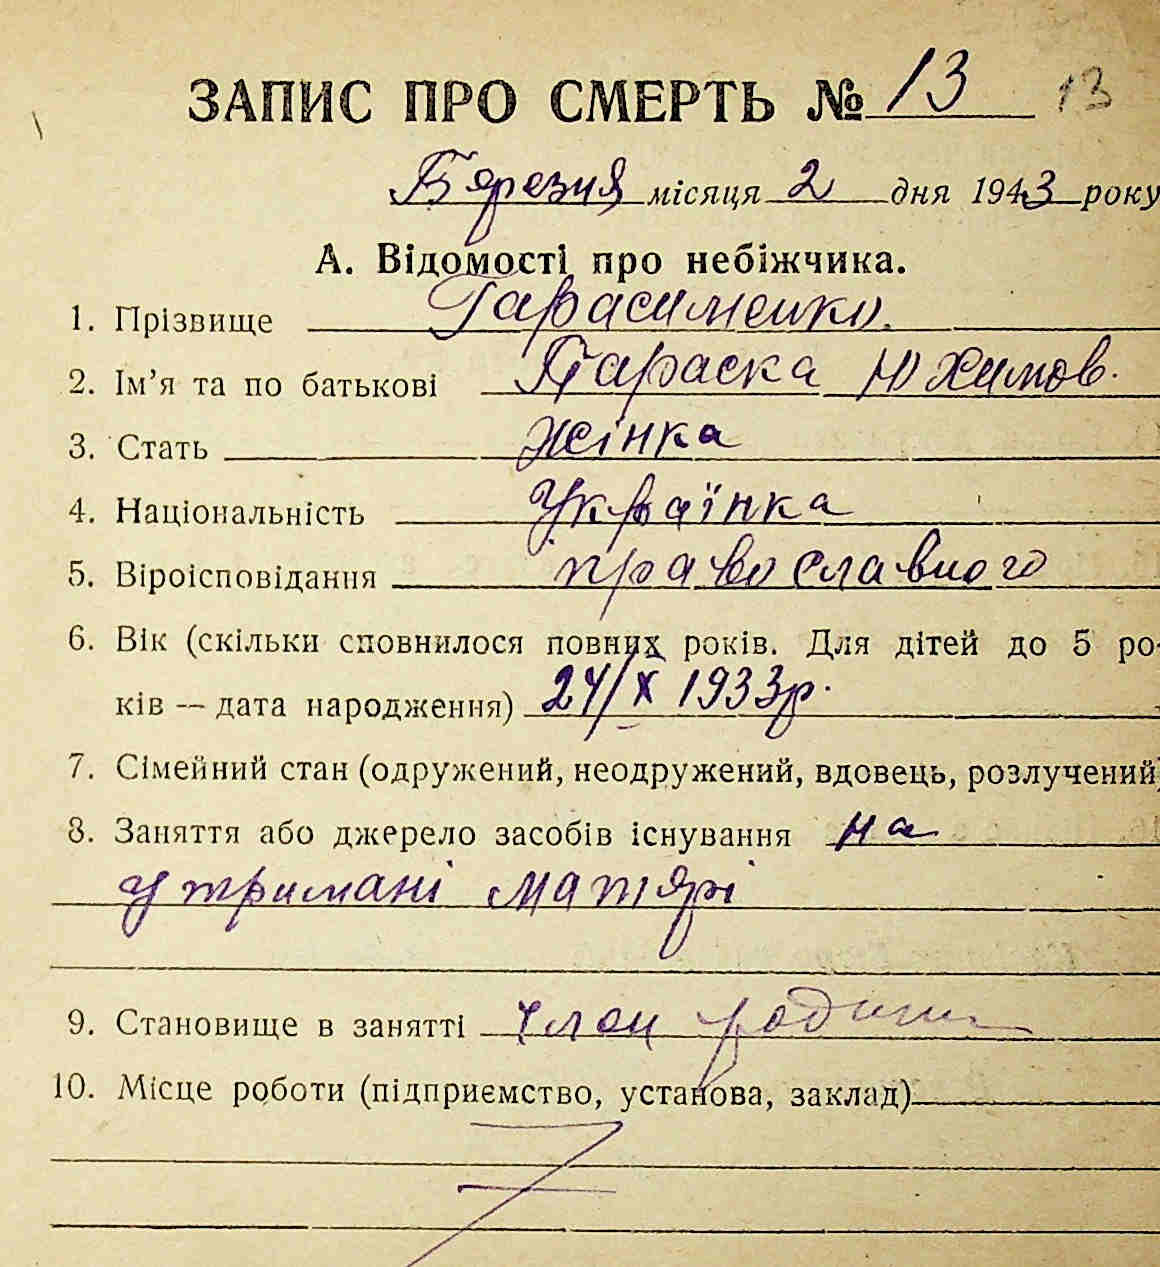 ЗАПИС ПРО СМЕРТЬ № 13 13
Березня місяця 2 дня 1943 року
А. Відомості про небіжчика.
1. Прізвище Гарасименко.
2. Ім’я та по батькові Параска Юхимов.
3. Стать жінка
4. Національність Українка
5. Віроісповідання православного
6. Вік (скільки сповнилося повних років. Для дітей до 5 ро-
ків — дата народження) 24/X 1933р.
7. Сімейний стан (одружений, неодружений, вдовець, розлучений)
8. Заняття або джерело засобів існування на
утримані матярі
9. Становище в занятті член родини
10. Місце роботи (підприємство, установа, заклад)